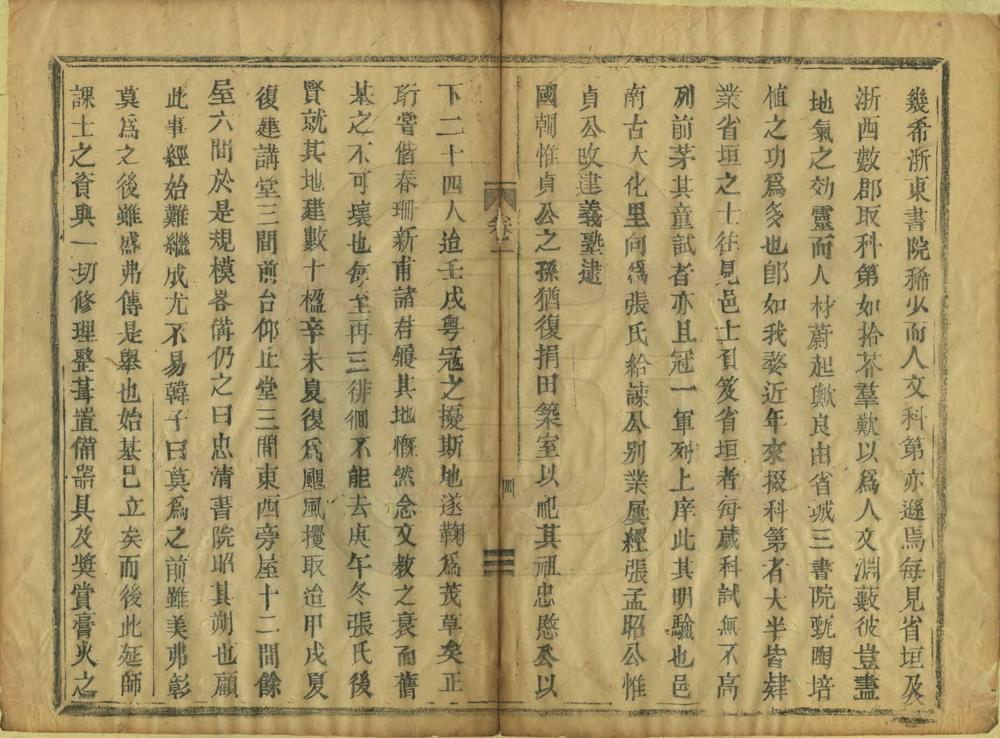 幾希浙東書院稀少而人文科第亦遜焉每見省垣及
浙西數郡取科第如拾芥羣歎以爲人文淵藪彼豈盡
地氣之効靈而人材蔚起歟良由省城三書院甄陶培
植之功爲多也卽如我婺近年來掇科第者大半皆肄
業省垣之士往見邑士負笈省垣者每歲科試無不高
列前茅其童試者亦且冠一軍列上庠此其明驗也邑
南古大化里向爲張氏給諫公别業屢經張孟昭公惟
貞公改建義塾逮
國朝惟貞公之孫猶復捐田築室以祀其祖忠愍公以
卷二
四
下二十四人迨壬戌粤冦之擾斯地遂鞠爲茂草矣正
珩嘗偕春珊新甫諸君履其地慨然念文教之衰而舊
基之不可壞也每至再三徘徊不能去庚午冬張氏後
賢就其地建數十楹辛未夏復爲颶風攫取迨甲戌夏
復建講堂三間前台仰止堂三間東西旁屋十二間餘
屋六間於是規模畧備仍之曰忠清書院昭其朔也顧
此事經始難繼成尤不易韓子曰莫爲之前雖美弗彰
莫爲之後雖盛弗傳是舉也始基已立矣而後此延師
課士之資與一切修理整葺置備器具及奬賞膏火之